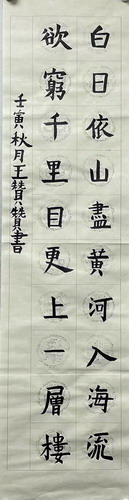 白日依山盡黃河入海流
欲窮千里目更上一層樓
壬寅秋月王贊贊書